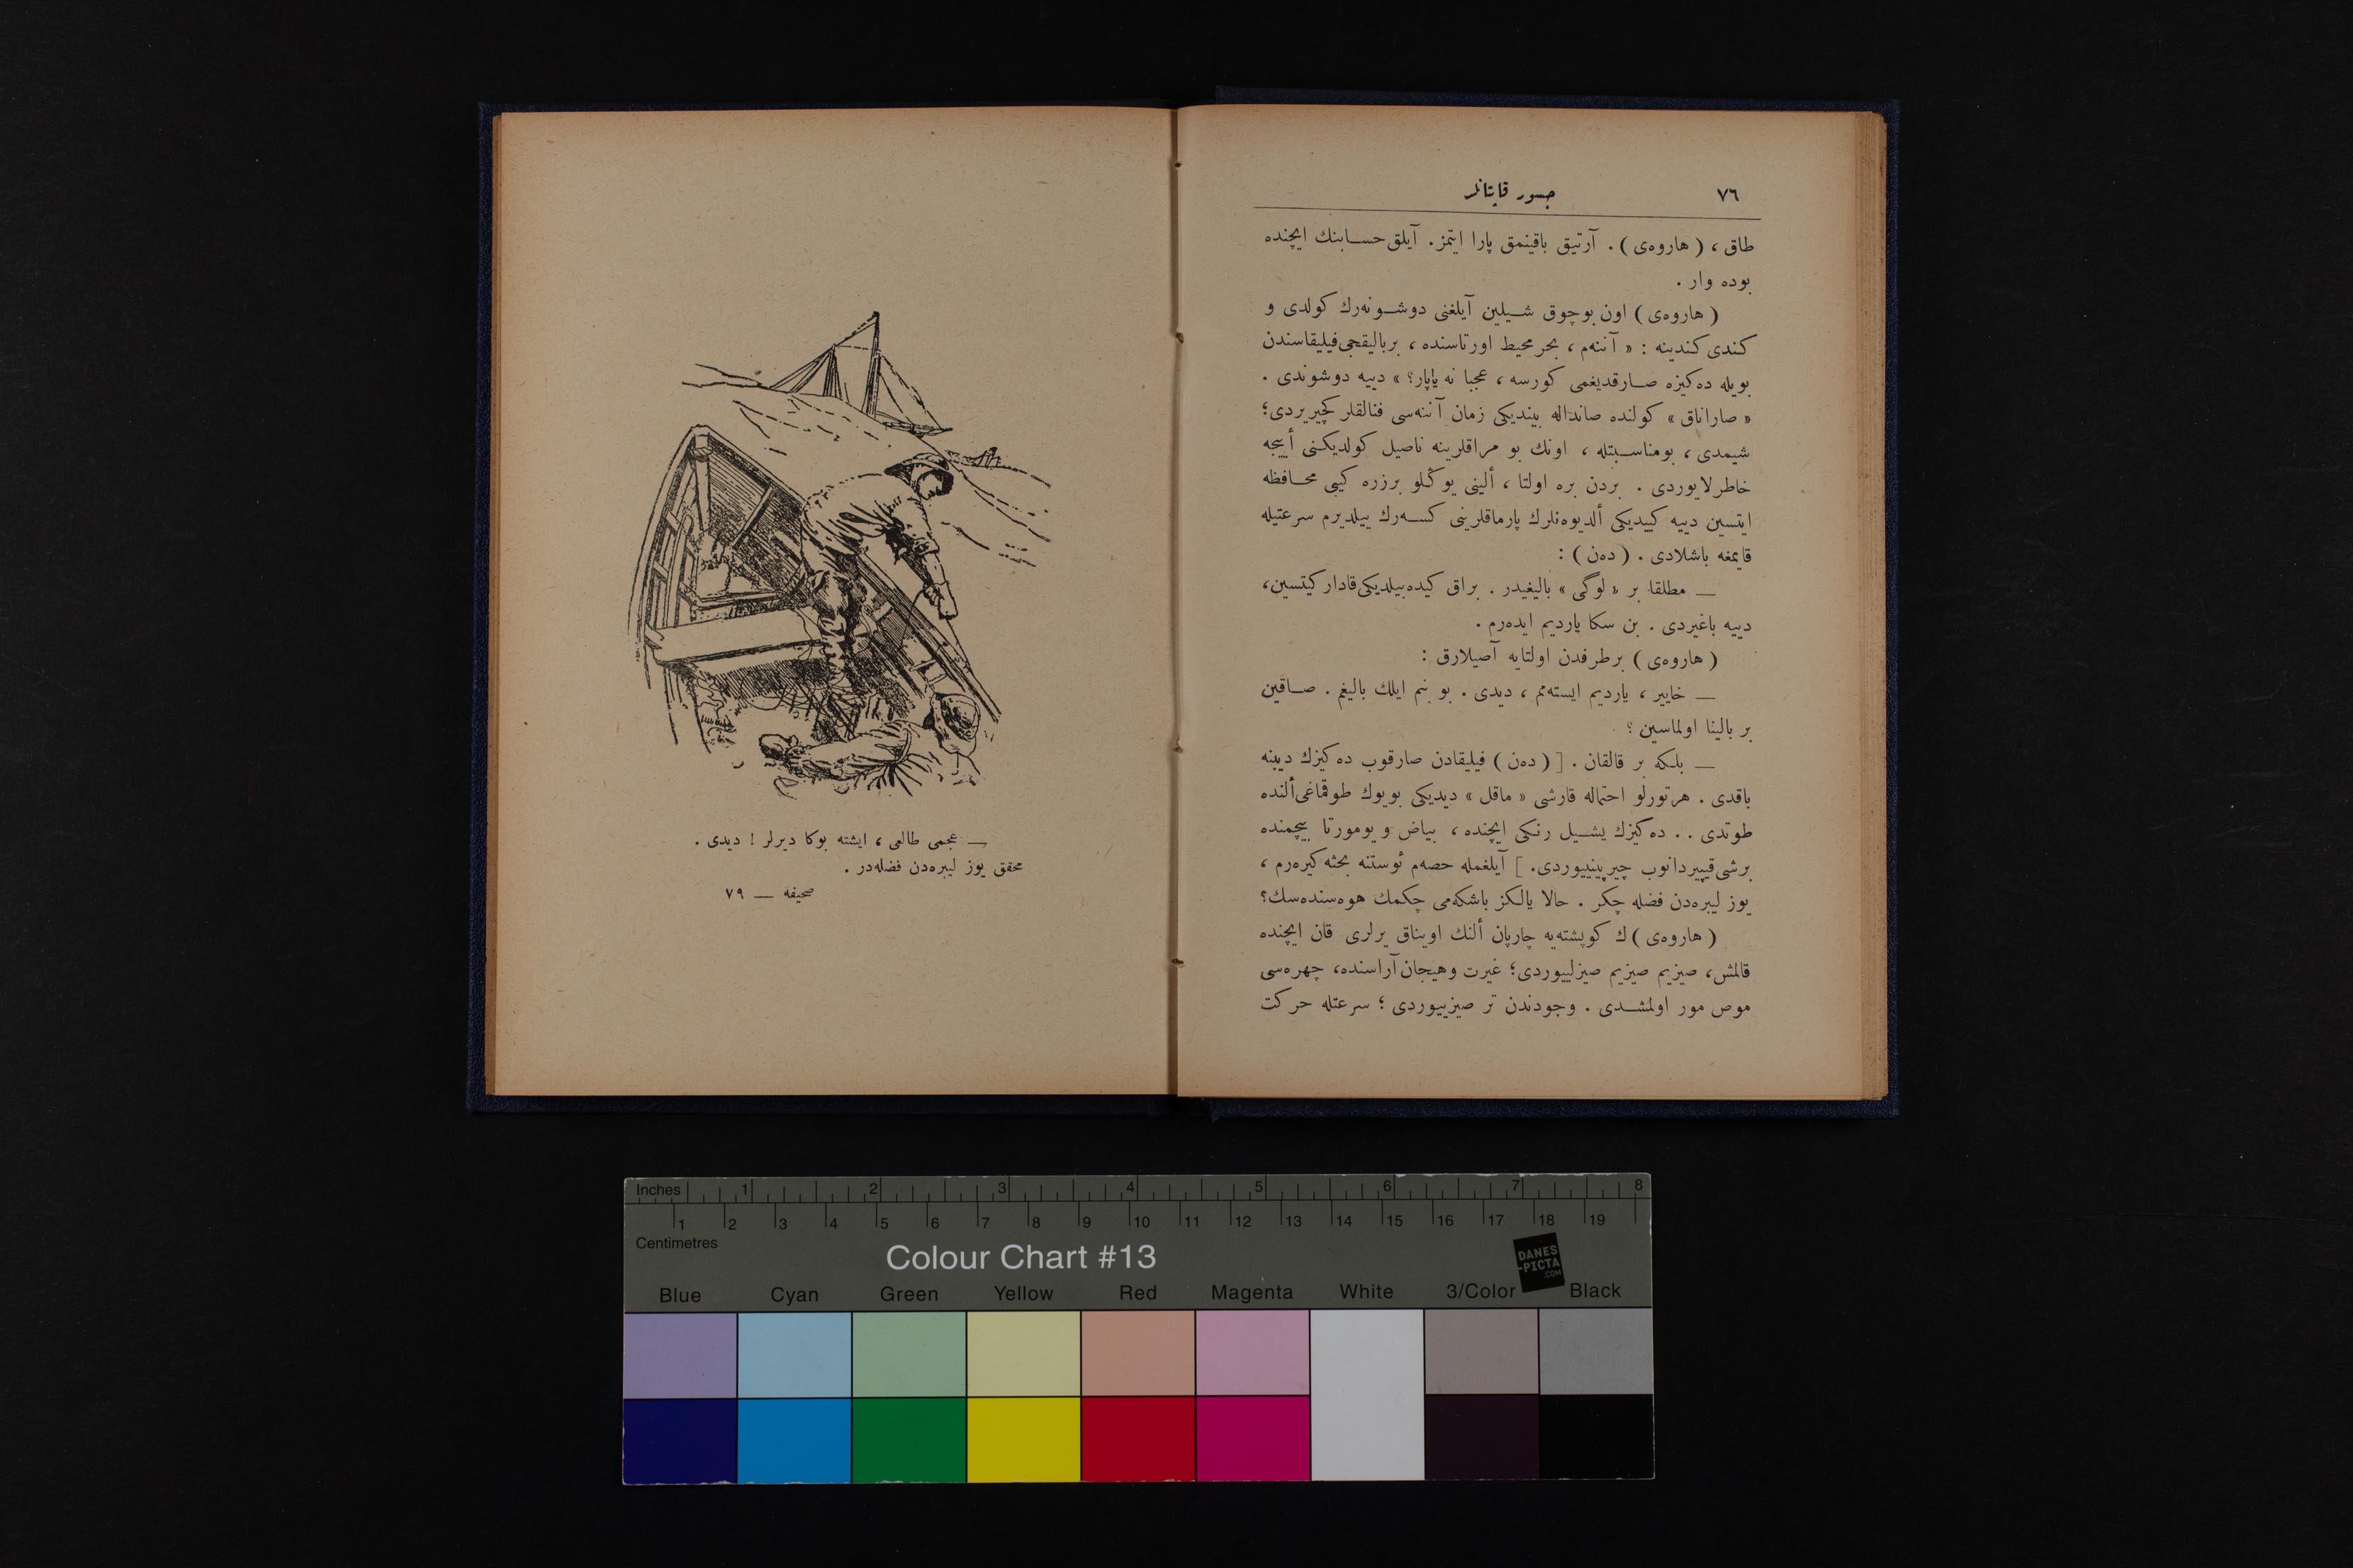 ٧٦
جسور قاپتانلر
طاق ، ( هاروه‌ی ) . آرتیق باقینمق پارا ایتمز. آیلق حسابنك ایچنده
بوده وار .
( هاروه‌ی ) اون بوچوق شیلین آیلغنی دوشونه‌رك كولدی و
كندی كندینه : « آننه‌م ، بحر محیط اورتاسنده ، بر بالیقجی فیلیقاسندن
بویله ده‌كیزه صارقدیغمی كورسه ، عجبا نه یاپار؟ » دییه دوشوندی .
« صاراناق » كولنده صانداله بیندیكی زمان آننه‌سی فنالقلر كچیریردی؛
شیمدی ، بومناسبتله ، اونك بو مراقلرینه ناصیل كولدیكنی أییجه
خاطرلایوردی . بردن بره اولتا ، ألینی یوكلو برزره كیبی محافظه
ایتسین دییه كییدیكی ألدیوه‌نلرك پارماقلرینی كسه‌رك ییلدیرم سرعتیله
قایمغه باشلادی . ( ده‌ن ) :
— مطلقا بر « لوگی » بالیغیدر . براق كیده‌بیلدیكی قادار كیتسین،
دییه باغیردی . بن سكا یاردیم ایده‌رم .
( هاروه‌ی ) برطرفدن اولتایه آصیلارق :
— خاییر ، یاردیم ایسته‌مم ، دیدی . بو بنم ایلك بالیغم . صاقین
بر بالینا اولماسین ؟
— بلكه بر قالقان . [ ( ده‌ن ) فیلیقادن صارقوب ده‌كیزك دیبنه
باقدی . هرتورلو احتماله قارشی « ماقل » دیدیكی بویوك طوقماغی ألنده
طوتدی . . ده‌كیزك یشیل رنكی ایچنده ، بیاض و یومورتا بیچمنده
برشی قیپیردانوب چیرپینییوردی. ] آیلغمله حصه‌م ئوستنه بحثه كیره‌رم ،
یوز لیبره‌دن فضله چكر . حالا یالكز باشكه‌می چكمك هوه‌سنده‌سك؟
( هاروه‌ی ) ك كوپشته‌یه چارپان ألنك اویناق یرلری قان ایچنده
قالمش، صیزیم صیزیم صیزلییوردی؛ غیرت وهیجان آراسنده، چهره‌سی
موص مور اولمشدی . وجودندن تر صیزییوردی ؛ سرعتله حركت
— عجمی طالعی ، ایشته بوكا دیرلر ! دیدی .
محقق یوز لیبره‌دن فضله‌در .
صحیفه — ٧٩
Inches 1 2 3 4 5 6 7 8
1 2 3 4 5 6 7 8 9 10 11 12 13 14 15 16 17 18 19
Centimetres
Colour Chart #13
DANES
-PICTA
.COM
Blue Cyan Green Yellow Red Magenta White 3/Color Black